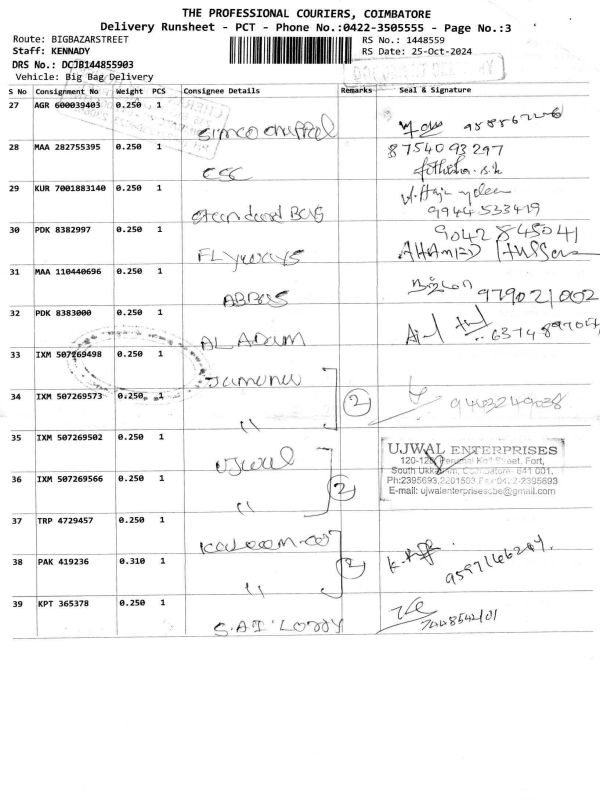 THE PROFESSIONAL COURIERS, COIMBATORE
Delivery Runsheet - PCT - Phone No.:0422-3505555 - Page No.:3
Route: BIGBAZARSTREET
RS No.: 1448559
Staff: KENNADY
RS Date: 25-Oct-2024
DRS No.: DCJB144855903
Vehicle: Big Bag Delivery
S No Consignment No Weight PCS Consignee Details Remarks Seal & Signature
27 AGR 600039403 0.250 1
28 MAA 282755395 0.250 1 8754093297
CSC
29 KUR 7001883140 0.250 1
9944533419
30 PDK 8382997 0.250 1 9042845041
FLYWAYS AHAMED
31 MAA 110440696 0.250 1
ABBAS 9790210002
32 PDK 8383000 0.250 1
AL ADAM
33 IXM 507269498 0.250 1
Jamuna
34 IXM 507269573 0.250 1 2 9403249038
"
35 IXM 507269502 0.250 1
Ujwal
UJWAL ENTERPRISES
36 IXM 507269566 0.250 1 2
"
South Ukkadam, Coimbatore- 641 001.
Ph:2395693,2201503,Fax:0422-2395693
E-mail: ujwalenterprisescbe@gmail.com
37 TRP 4729457 0.250 1
38 PAK 419236 0.310 1 2
"
39 KPT 365378 0.250 1
S.A.I LORRY